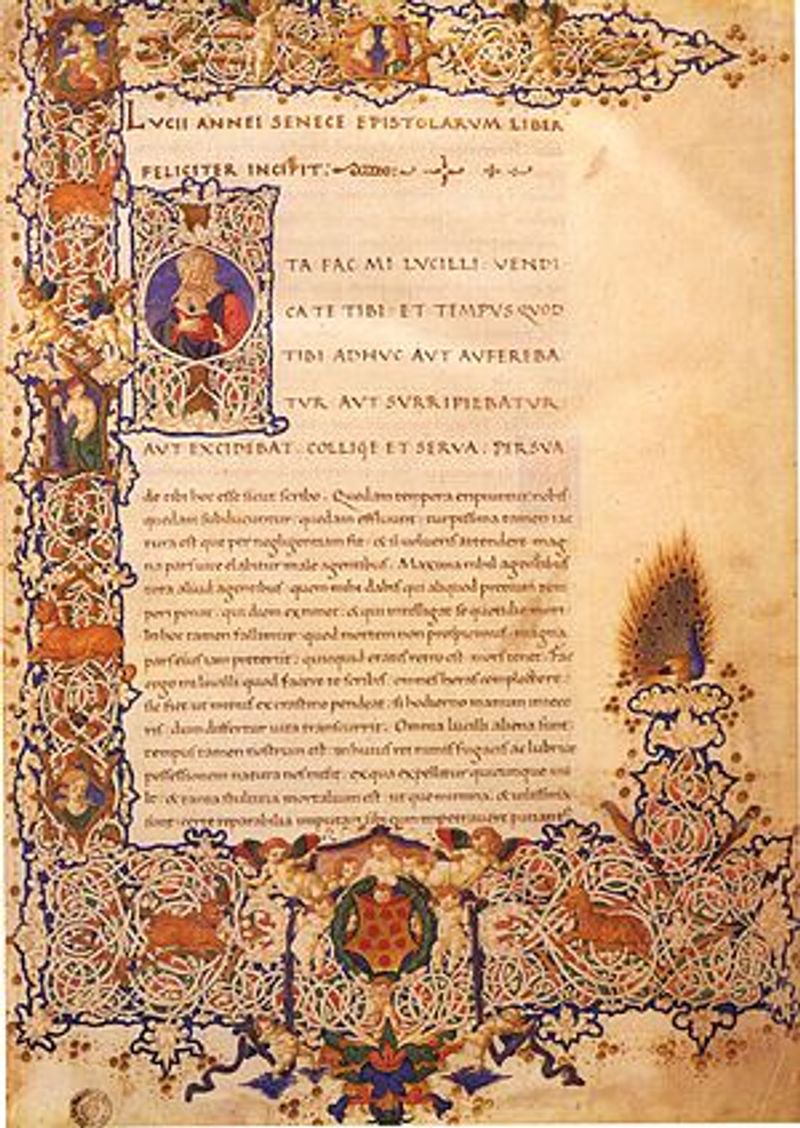 LVCII ANNEI SENECE EPISTOLARVM LIBER
FELICITER INCIPIT.
TA FAC MI LVCILLI: VENDI
CA TE TIBI: ET TEMPVS QVOD
TIBI ADHVC AVT AVFEREBA
TVR AVT SVRRIPIEBATVR
AVT EXCIDEBAT. COLLIGE ET SERVA. PERSVA
de tibi hoc esse sicut scribo. Quedam tempora eripiuntur nobis
quedam subducuntur: quedam effluunt: turpissima tamen iac
tura est que per negligentiam fit. & si volueris attendere mag
na pars vite elabitur male agentibus. Maxima nihil agentibus
tota aliud agentibus. quem mihi dabis qui aliquod precium tem
pori ponat: qui diem extimet: & qui intelligat se quotidie mori
In hoc tamen fallimur: quod mortem non prospicimus. magna
pars eius iam preterit: quicquid etatis retro est mors tenet. Fac
ergo mi lucilli quod facere te scribis. omnes horas complectere:
sic fiet ut minus ex crastino pendeas. si hodierno manum iniece
ris. dum differtur vita transcurrit. Omnia lucilli aliena sunt:
tempus tamen nostrum est. in huius rei unius fugacis ac lubrice
possessionem natura nos misit: ex qua expellitur quicunque
& tanta stultitia mortalium est: ut que minima & vilissima
sunt: certe reparabilia imputari sibi cum impetravere patiantur